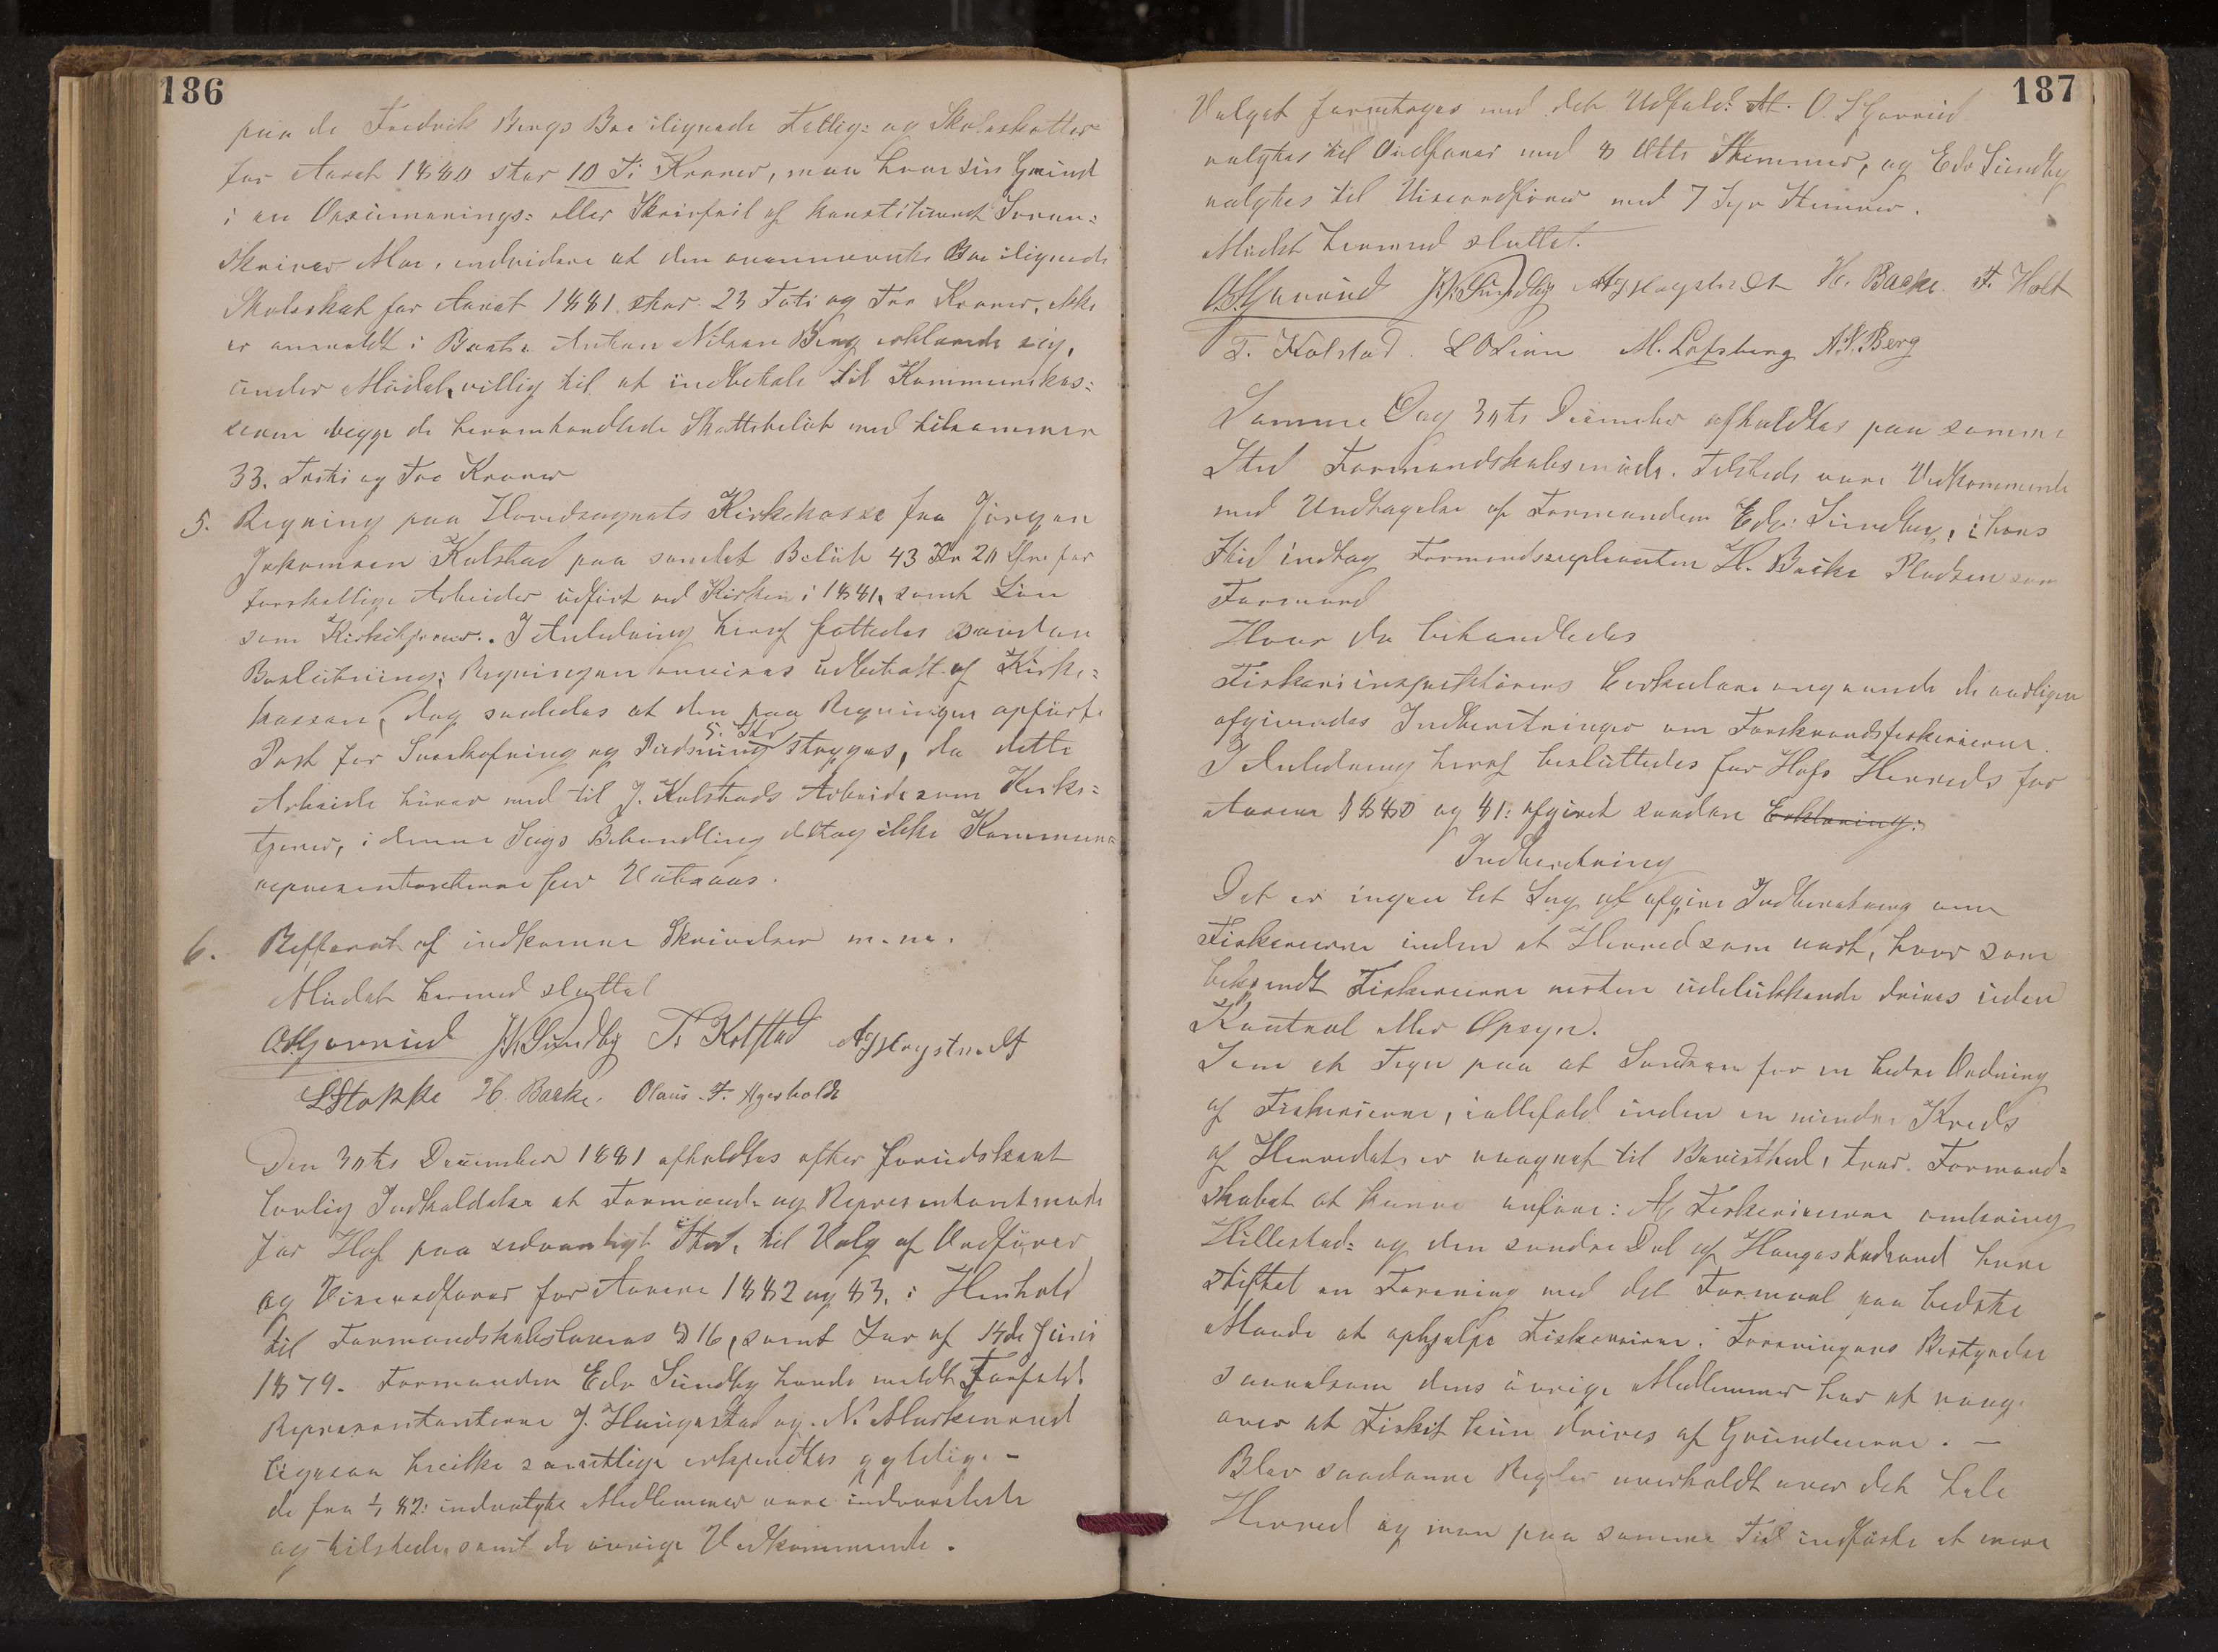 186
paa de Fredrik Bergs Bo ilignede Fattig= og Skoleskatter
for Aaret 1880 stor 10 Ti Kroner, maa have sin Grund
i en Opsumerings= eller Skrivfeil af konstitueret Soren=
skriver Moe, endvidere at den ovennævnte Bo ilignede
Skoleskat for Aaret 1881 stor 23 Toti og Tre Kroner, ikke
er anmeldt i Boet. Anton Nilsen Berg erklærede sig,
under Mødet, villig til at indbetale til Kommunekas=
seren begge de heromhandlede Skattebeløb med tilsammen
33. Treti og Tre Kroner
5. Regning paa Hovedsognets Kirkekasse fra Jørgen
Jakobsen Kolstad paa samlet Beløb 43 Kr 20 Øre for
forskjellige Arbeider udført ved Kirken i 1881, samt Løn
som Kirketjener. I Anledning heraf fattedes saadan
Beslutning: Regningen anvises udbetalt af Kirke=
kassen, dog saaledes at den paa Regningen opførte
5. Kr
Post for Sneskofning og stryges, da dette
Arbeide hører med til J. Kolstads Arbeide som Kirke=
tjener, i denne Sags Behandling deltog ikke Kommune=
representanterne for Vasaas.
6. Refferat af indkomne Skrivelser m.m.
Mødet hermed sluttet
O. S. Gjerrud J. N. Sundby T. Kolstad A Grystvedt
L Stokke H. Bakke. Olaus F. Agerholdt
Den 30te December 1881 afholdtes efter forudskeet
lovlig Indkaldelse et Formands og Representantmøde
for Hof paa sedvanligt Sted, til Valg af Ordfører
og Viseordfører for Aarene 1882 og 83, i Henhold
til Formandskabslovens § 16, samt Lov af 14de Juni
1879. Formanden Edv Sundby havde meldt Forfald.
Representanterne J. Haugestad og N. Muskerud
ligesaa hvilke samtlige erkjendtes gyldige. –
de fra 1/1 82: indvalgte Medlemmer vare indvarslede
og tilstede, samt de øvrige Vedkommende.
187
Valget foretoges med det Udfald: At O. S Gjerrud
valgtes til Ordfører med 8 Otte Stemmer, og Edv Sundby
valgtes til Viseordfører med 7 Syv Stemmer.
Mødet hermed sluttet.
O. S. Gjerrud J. N. Sundby A Grystvedt H. Bakke. F. Holt
T. Kolstad. L O Lien M. Lofsberg A. N. Berg
Samme Dag 30te December afholdtes paa samme
Sted Formandskabsmøde. Tilstede vare Vedkommende
med Undtagelse af Formanden Edv: Sundby, i hans
Sted indtog Formandssupleanten H. Bakke Pladsen som
Formand
Hvor da behandledes
Fiskeriinspektørens Cirkulære angaaende de aarligen
afgivendes Indberetninger om Ferskvandsfiskerierne.
I Anledning heraf besluttedes for Hofs Herreds for
Aarene 1880 og 81: afgivet saadan Erklæring:
Indberetning
Det er ingen let Sag at afgive Indberetning om
Fiskerierne inden et Herred som vort, hvor som
bekjendt Fiskerierne næsten udelukkende drives uden
Kontrol eller Opsyn.
Som et Tegn paa at Sandsen for en bedre Ordning
af Fiskerierne, iallefald inden en mindre Kreds
af Herredet, er vaagnet til Bevisthed, tror Formand=
skabet at kunne anføre: At Fiskerieierne omkring
Hillestad= og den søndre Del af Haugestadvand have
stiftet en Forening med det Formaal paa bedste
Maade at ophjælpe Fiskerierne. Foreningens Bestyrelse
saavelsom dens øvrige Medlemmer har at vaage
over at Fisket kun drives af Grundeierne. –
Blev saadanne Regler overholdt over det hele
Herred og man paa samme Tid indførte et mere